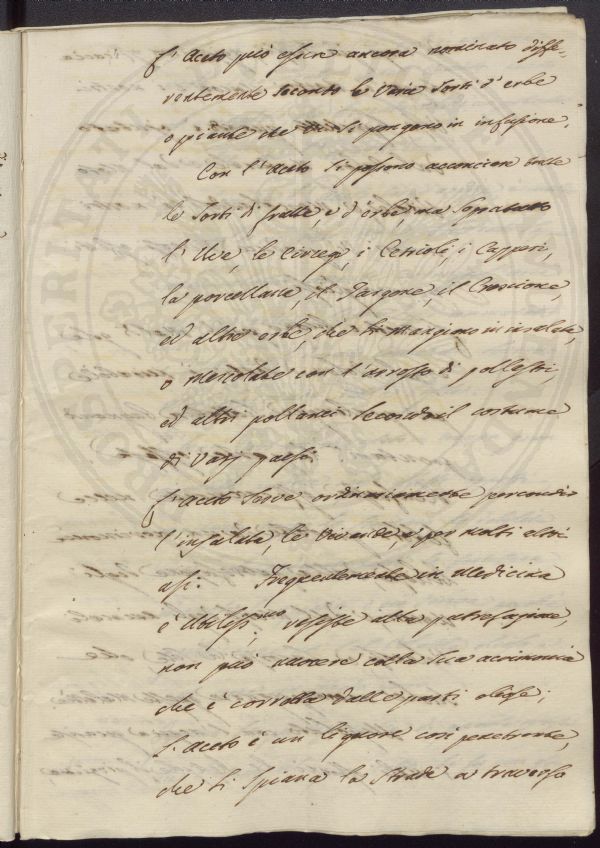 L'Aceto può essere ancora nominato diffe-
rentemente secondo le varie Sorti d'erbe
o piante che vi si pongono in infusione.
Con l'Aceto si possono acconciare tutte
le Sorti di frutte, e d'erbe, ma sopratutto
l'Uve, le Cirege, i Cetrioli, i Capperi,
la porcellana, il Targone, il Crescione,
ed altre erbe, che si mangiano in insalata,
o mescolate con l'arrosto di pollastri,
ed altri pollami secondo il costume
di varj paesi.
L'Aceto serve ordinariamente per condir
l'insalata, le vivande, e per molti altri
usi. Frequentemente in Medicina
è Utilissimo resiste alla putrefazione,
non può nuocere colla sua acrimonia
che è corrotta dalle parti oleose;
L'Aceto è un liquore così penetrante,
che si spiana la Strada a traverso